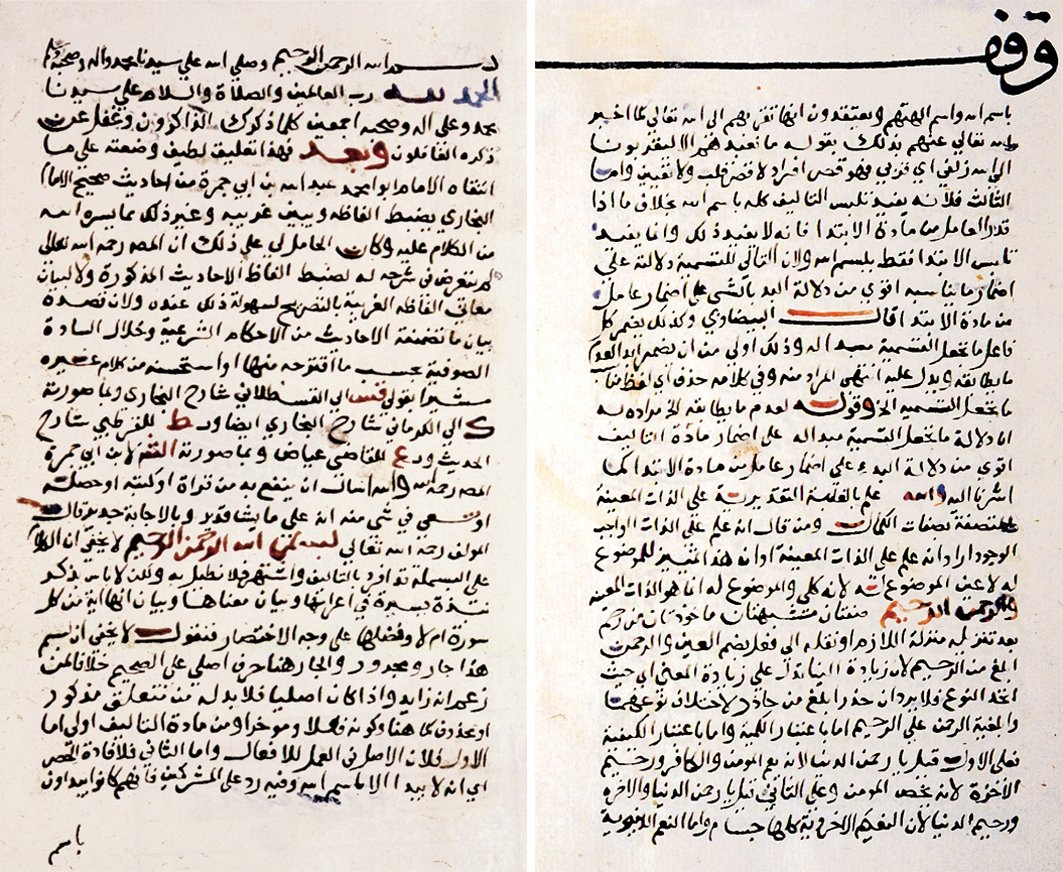 بسم الله الرحمن الرحيم وصلي الله علي سيدنا محمد واله وصحبه وسلم
الحمد لله رب العالمين والصلاة والسلام علي سيدنا
محمد وعلي اله وصحبه اجمعين كلما ذكرك الذاكرون وغفل عن
ذكره الغافلون وبعد فهذا تعليق لطيف وضعته علي ما
انتقاه الامام ابو محمد عبد الله بن ابي جمرة من احاديث صحيح الامام
البخاري يضبط الفاظه ويبين غريبه وغير ذلك مما يسره الله
من الكلام عليه وكان الحامل لي علي ذلك ان المص رحمه الله تعالي
لم يتعرض في شرحه له لضبط الفاظ الاحاديث المذكورة ولا لبيان
معاني الفاظه الغريبة بالتصريح لسهولة ذلك عنده ولان قصده
بيان ما تضمنته الاحاديث من الاحكام الشرعية وخلال السادة
الصوفية بحسب ما اقترحه منها او استحسنه من كلام غيره
مشيرا بقولي قس الي القسطلاني شارح البخاري وبما صورته
ك الي الكرماني شارح البخاري ايضا وب ط للقرطبي شارح
الحديث وب ع للقاضي عياض وبما صورته الثقه لابن ابي جمرة
المص رحمه الله والله اسال ان ينفع به من قراه او كتبه او حصله
او سعي في شي منه انه علي ما يشا قدير وبالاجابة جدير قال
المولف رحمه الله تعالي بسم الله الرحمن الرحيم لا يخفي ان الكلام
علي البسملة قد افرد بالتاليف واشتهر فلا نطيل به ولكن لا باس بذكر
نبذة يسيرة في اعرابها وبيان معناها وبيان انها اية من كل
سورة ام لا وفضلها علي وجه الاختصار فنقول لا يخفي ان بسم
هذا جار ومجرور والجار هنا حرف اصلي علي الصحيح خلافا لمن
زعم انه زايد واذا كان اصليا فلا بد له من متعلق مذكور
او محذوف كما هنا وكونه فعلا وموخرا ومن مادة التاليف اولي اما
الاول فلان الاصل في العمل للافعال واما الثاني فلافادة الحصر
اي انه لا يبدا الا باسم الله وفيه رد علي المشركين فانهم كانوا يبداون
باسم
وقف
باسم الله واسم الهتهم ويعتقدون انها تقربهم الي الله تعالي كما اخبر
الله تعالي عنهم بذلك بقوله ما نعبدهم الا ليقربونا
الي الله زلفي اي قربي فهو قصر افراد لا قصر قلب ولا تعيين واما
الثالث فلانه يفيد تلبس التاليف كله باسم الله بخلاف ما اذا
قدر العامل من مادة الابتدا فانه لا يفيد ذلك وانما يفيد
تلبس الابتدا فقط ببسم الله ولان التالي للتسمية دلالة علي
اضمار ما يناسبه اقوي من دلالة البد بالشي علي اضمار عامل
من مادة الابتدا قال البيضاوي وكذلك يضمر كل
فاعل ما تجعل التسمية مبدا له وذلك اولي من ان يضمر ابدا لعدم
ما يطابقه ويدل عليه انتهي المراد منه وفي كلامه حذف اي لفظ ما
ما تجعل التسمية الخ وقوله لعدم ما يطابقه الخ مراده به
ان دلالة ما تجعل التسمية مبدا له علي اضمار مادة التاليف
اقوي من دلالة البدء علي اضمار عامل من مادة الابتدا كما
اشرنا اليه والله علم بالغلبة التقديرية علي الذات المعينة
المتصفة بصفات الكمال ومن قال انه علم علي الذات الواجب
الوجود اراد انه علم علي الذات المعينة او انه هذا تفسير للموضوع
له لا عين الموضوع له لانه كلي والموضوع له انما هو الذات المعينه
والرحمن الرحيم صفتان مشبهتان ماخوذتان من رحم
بعد تنزيله منزلة اللازم او نقله الي فعل بضم العين والرحمن
ابلغ من الرحيم لان زيادة البنا تدل علي زيادة المعني اي حيث
اتحد النوع فلا يرد ان حذر ابلغ من حاذر لاختلاف نوعهما
وابلغية الرحمن علي الرحيم اما باعتبار الكمية واما باعتبار الكيفية
فعلي الاول قيل يا رحمن الدنيا لانه يعم المومن والكافر ورحيم
الاخرة لانه يخص المومن وعلي الثاني قيل يا رحمن الدنيا والاخره
ورحيم الدنيا لان النعم الاخروية كلها جسام واما النعم الدنيوية